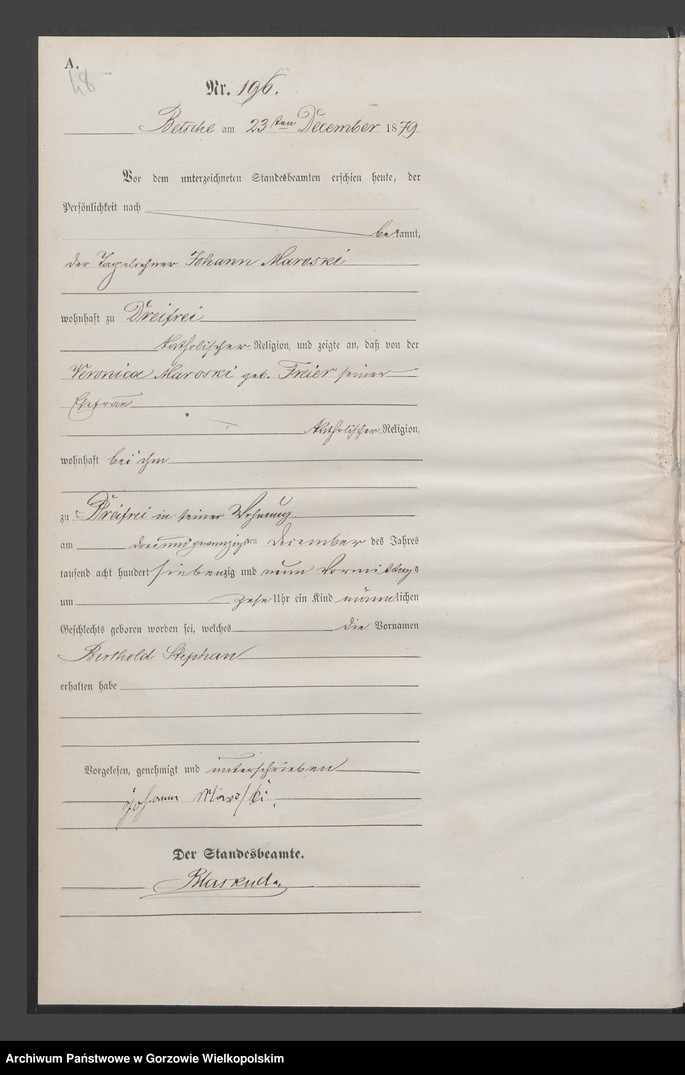 A.
48
Nr. 196.
Betsche am 23ten December 1879
Vor dem unterzeichneten Standesbeamten erschien heute, der
Persönlichkeit nach
bekannt,
der Tagelöhner Johann Maroski
wohnhaft zu Dreifrei
katholischer Religion, und zeigte an, daß von der
Veronica Maroski geb. Freier seiner
Ehefrau
katholischer Religion,
wohnhaft bei ihm
zu Dreifrei in seiner Wohnung
am dreiundzwanzigsten December des Jahres
tausend acht hundert siebenzig und neun Vormittags
um zehn Uhr ein Kind männlichen
Geschlechts geboren worden sei, welches die Vornamen
Berthold Stephan
erhalten habe
Vorgelesen, genehmigt und unterschrieben
Johann Maroski.
Der Standesbeamte.
Archiwum Państwowe w Gorzowie Wielkopolskim